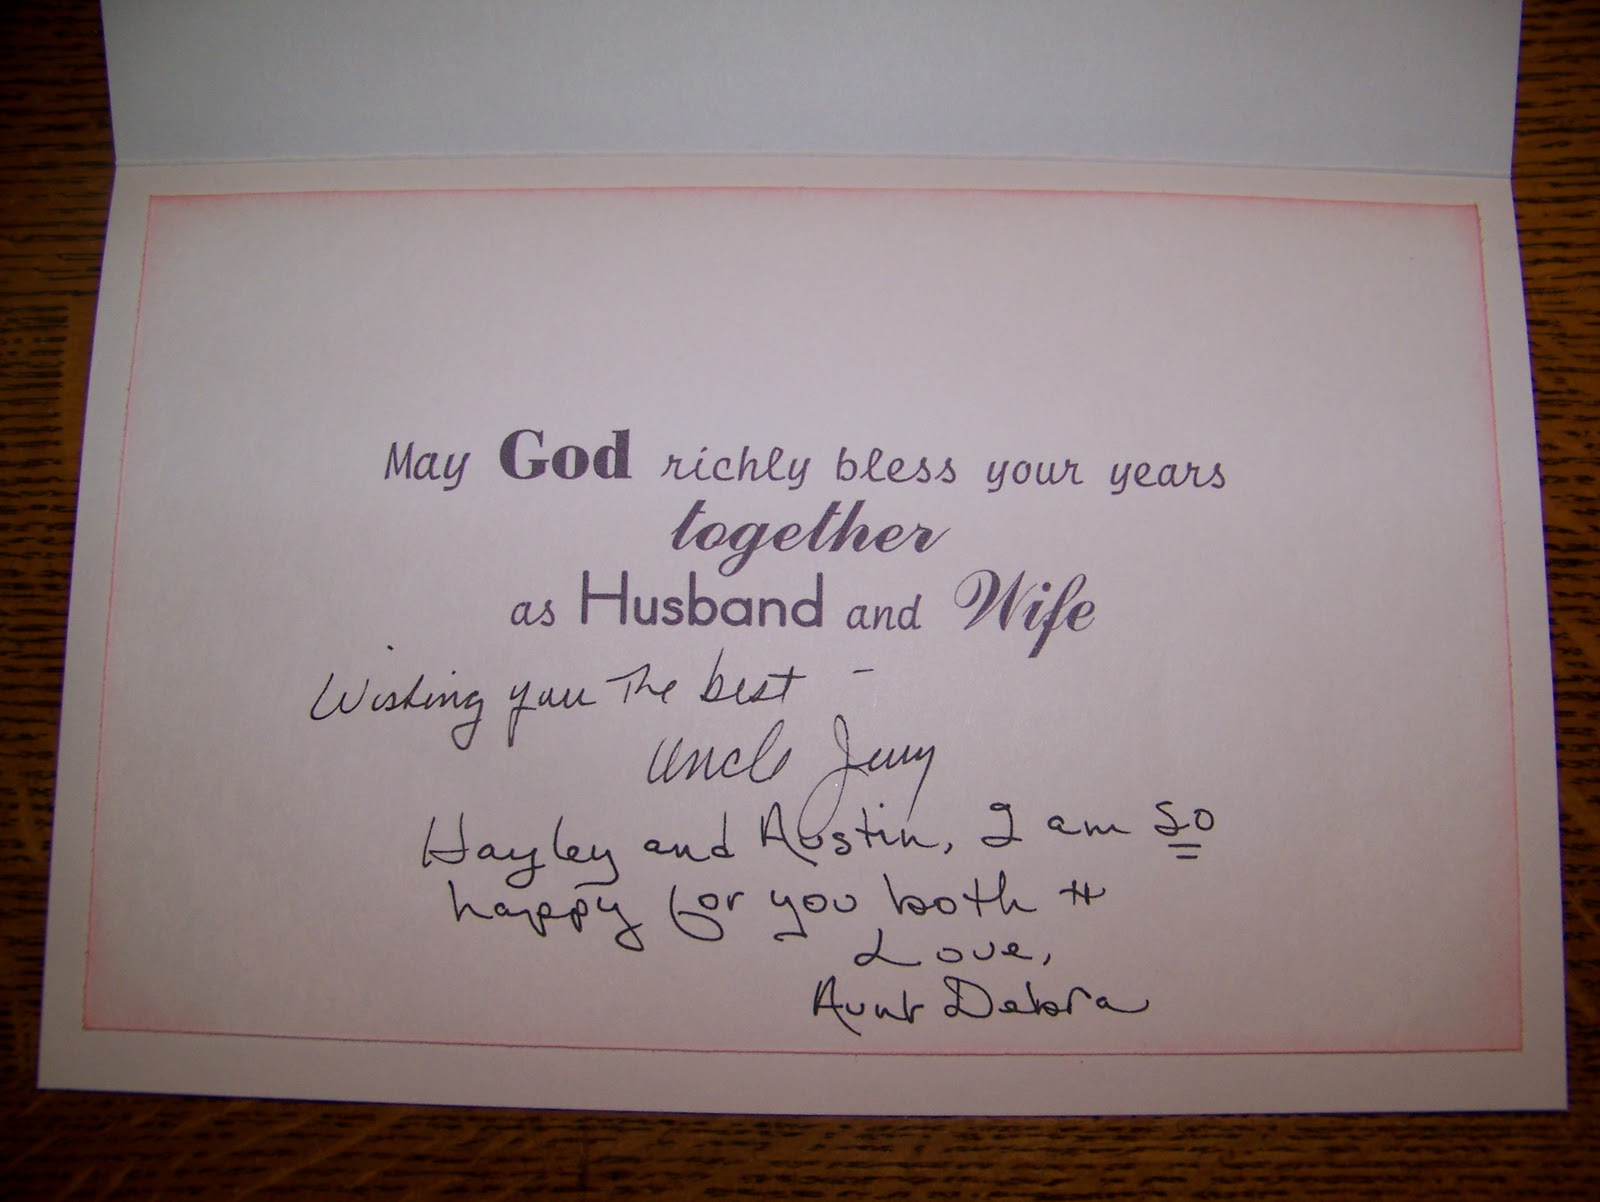 May God richly bless your years
together
as Husband and Wife
Wishing you The best -
Uncle Jerry
Hayley and Austin, I am so
happy for you both
Love,
Aunt Debra